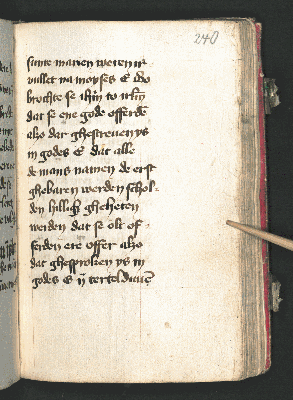 240
sunte marien weren ir
vullet na moyses E do
brochte se ihm to irlm
dat se ene gode offerde
also dat ghescreuen ys
in godes E dat alle
de mans namen de erst
ghebaren werden schol-
den hillich gheheten
werden dat se ok of-
ferden ere offer also
dat ghesproken ys in
godes E ij torteldunen